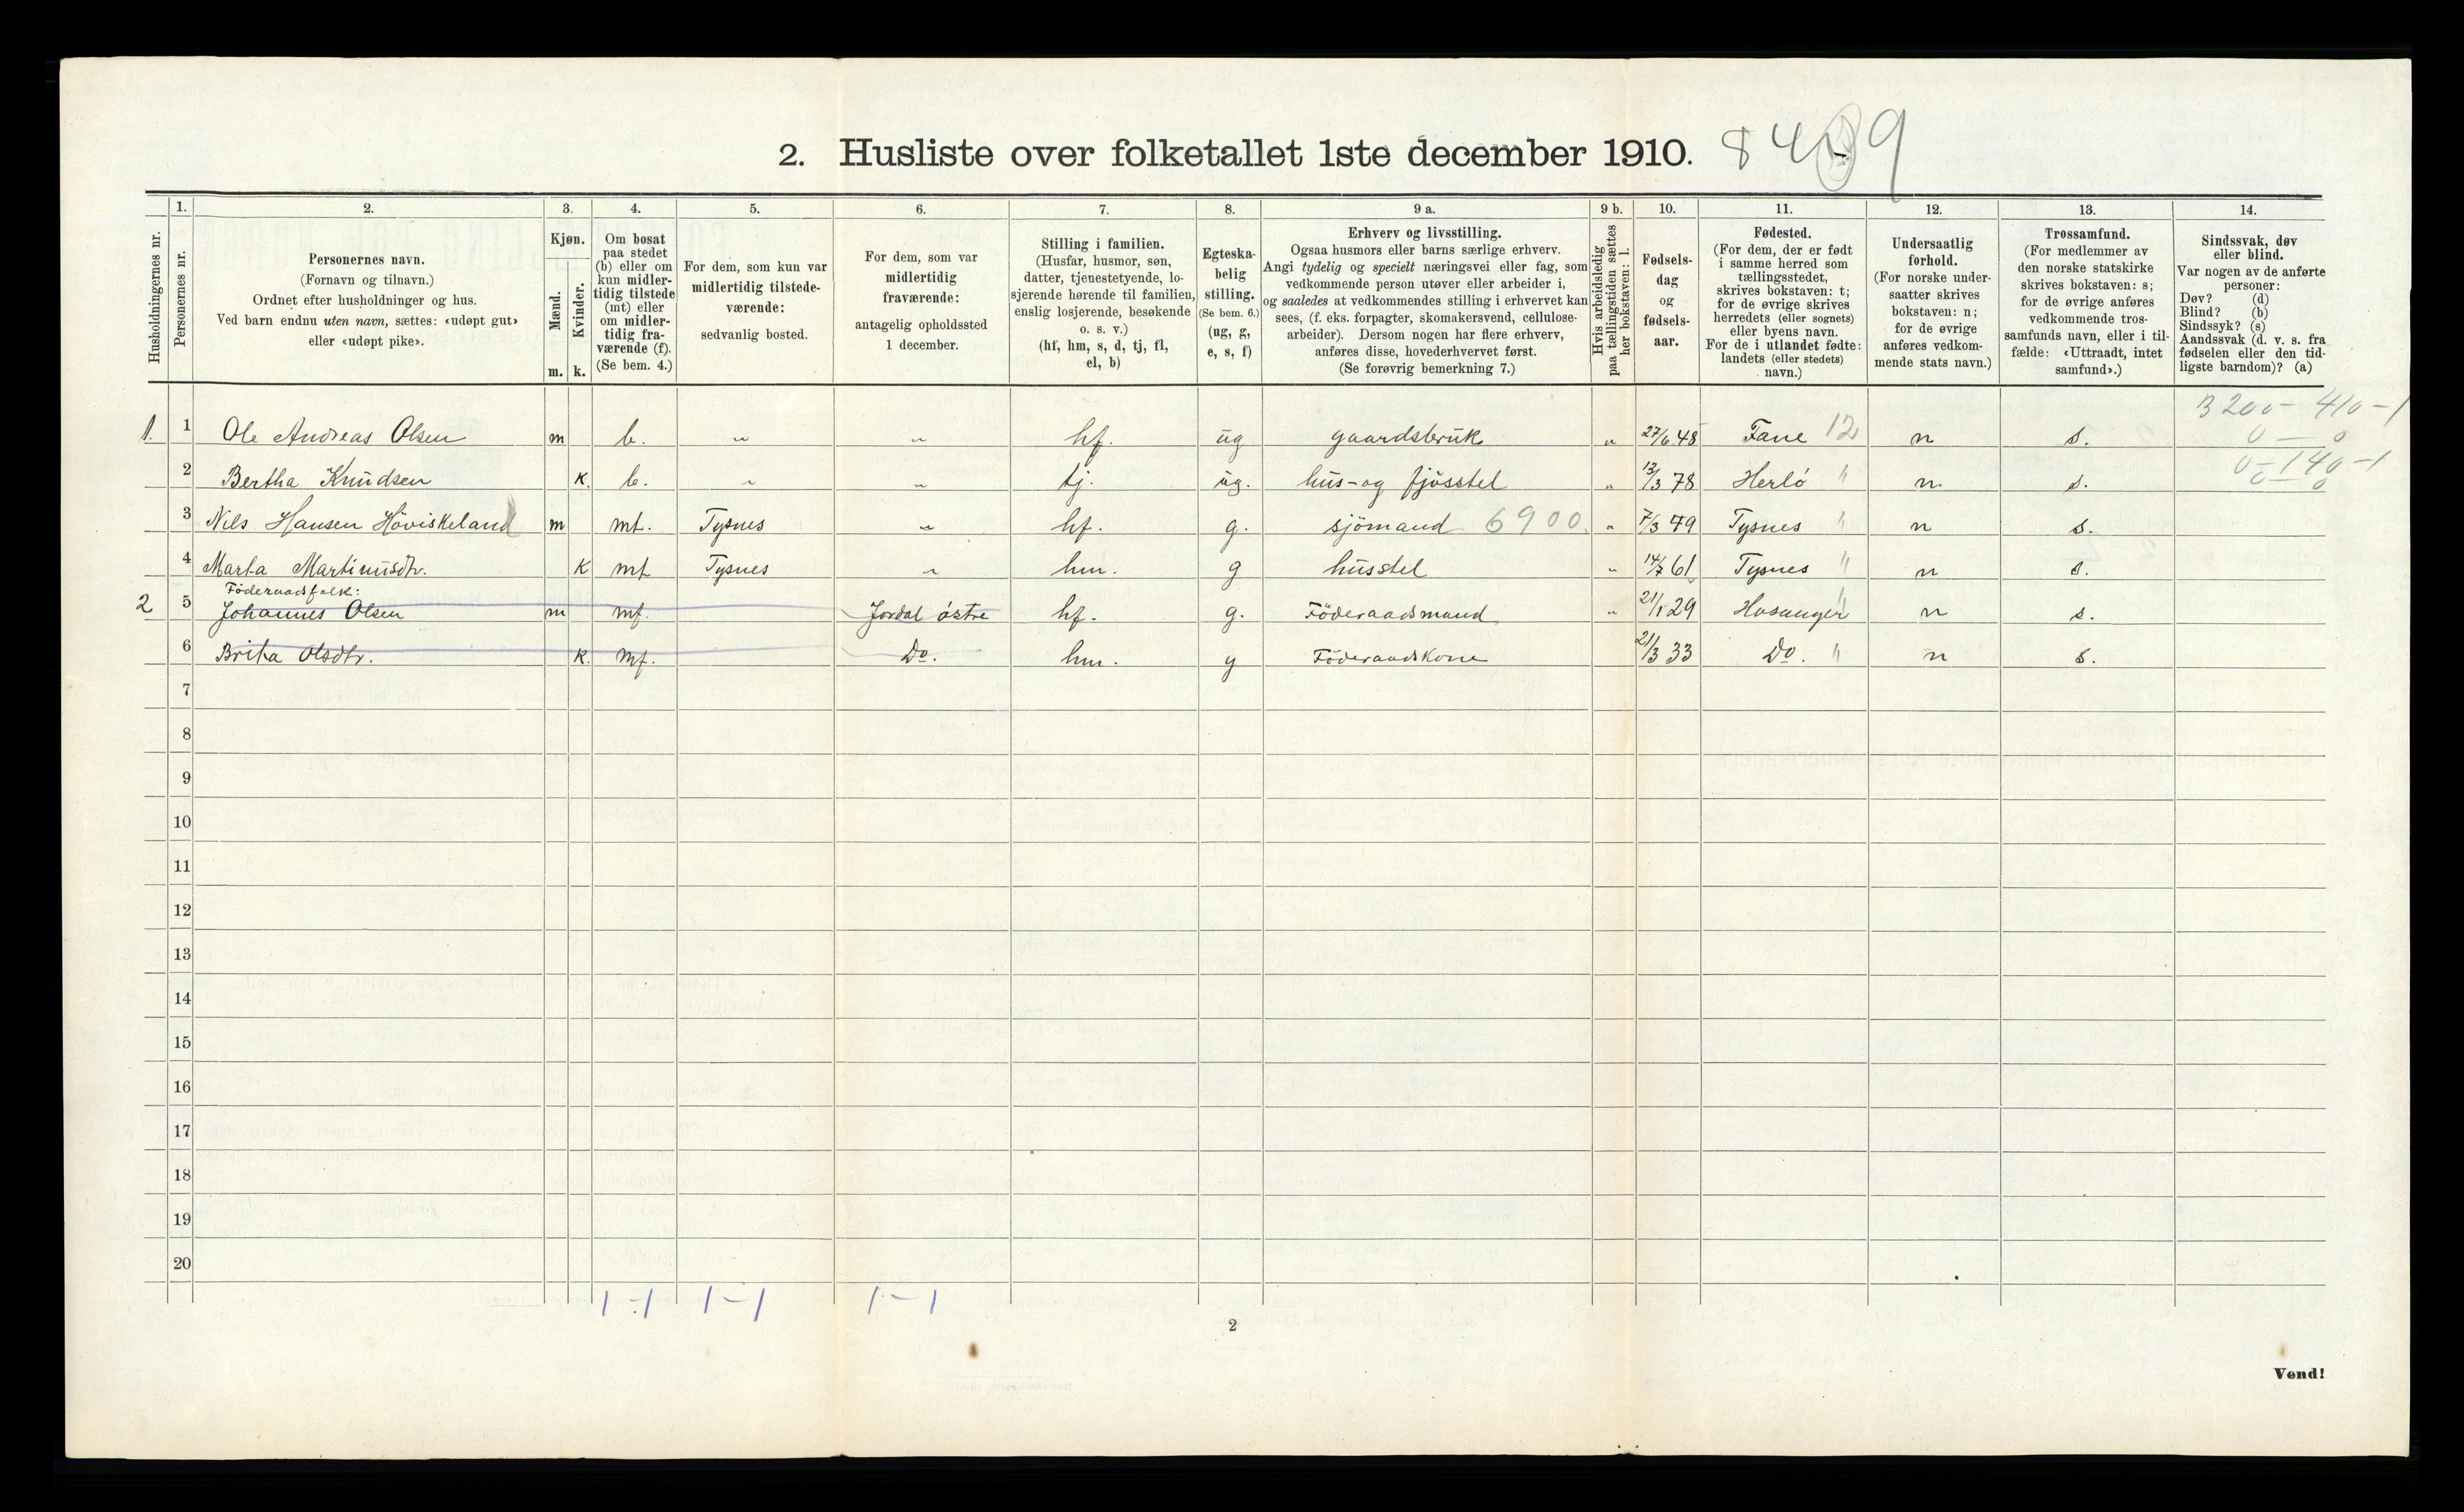 2. Husliste over folketallet 1ste december 1910.
Husholdningernes nr.
1.
Personernes nr.
2.
Personernes navn.
(Fornavn og tilnavn.)
Ordnet efter husholdninger og hus.
Ved barn endnu uten navn, sættes: «udøpt gut»
eller «udøpt pike».
3.
Kjøn.
Mænd.
Kvinder.
m. k.
4.
Om bosat
paa stedet
(b) eller om
kun midler-
tidig tilstede
(mt) eller
om midler-
tidig fra-
værende (f).
(Se bem. 4.)
5.
For dem, som kun var
midlertidig tilstede-
værende:
sedvanlig bosted.
6.
For dem, som var
midlertidig
fraværende:
antagelig opholdssted
1 december.
7.
Stilling i familien.
(Husfar, husmor, søn,
datter, tjenestetyende, lo-
sjerende hørende til familien,
enslig losjerende, besøkende
o. s. v.)
(hf, hm, s, d, tj, fl,
el, b)
8.
Egteska-
belig
stilling.
(Se bem. 6.)
(ug, g,
e, s, f)
9 a.
Erhverv og livsstilling.
Ogsaa husmors eller barns særlige erhverv.
Angi tydelig og specielt næringsvei eller fag, som
vedkommende person utøver eller arbeider i,
og saaledes at vedkommendes stilling i erhvervet kan
sees, (f. eks. forpagter, skomakersvend, cellulose-
arbeider). Dersom nogen har flere erhverv,
anføres disse, hovederhvervet først.
(Se forøvrig bemerkning 7.)
9 b.
Hvis arbeidsledig
paa tællingstiden sættes
her bokstaven: l.
10.
Fødsels-
dag
og
fødsels-
aar.
11.
Fødested.
(For dem, der er født
i samme herred som
tællingsstedet,
skrives bokstaven: t;
for de øvrige skrives
herredets (eller sognets)
eller byens navn.
For de i utlandet fødte:
landets (eller stedets)
navn.)
12.
Undersaatlig
forhold.
(For norske under-
saatter skrives
bokstaven: n;
for de øvrige
anføres vedkom-
mende stats navn.)
13.
Trossamfund.
(For medlemmer av
den norske statskirke
skrives bokstaven: s;
for de øvrige anføres
vedkommende tros-
samfunds navn, eller i til-
fælde: «Uttraadt, intet
samfund».)
14.
Sindssvak, døv
eller blind.
Var nogen av de anførte
personer:
Døv? (d)
Blind? (b)
Sindssyk? (s)
Aandssvak (d. v. s. fra
fødselen eller den tid-
ligste barndom)? (a)
B 200 - 410 - 1
0 — 0
1. 1 Ole Andreas Olsen m b. " " hf. ug gaardsbruk " 27/6 48 Fane 12 n s.
0 - 140 - 1
0 - 0
2 Bertha Knudsen k. b. " " tj. ug. hus- og fjösstel " 13/3 78 Herlö " n. s.
3 Nils Hansen Höviskeland m mt. Tysnes " hf. g. sjömand 6900 " 7/3 79 Tysnes " n s.
4 Marta Martinusdtr. k mt Tysnes " hm. g husstel " 14/7 61 Tysnes " n s.
Föderaadsfolk:
2 5 Johannes Olsen m mf. Jordal östre hf. g. Föderaadsmand " 21/1 29 Hosanger " n s.
6 Brita Olsdtr. k. mf. Do. hm. g Föderaadskone 21/3 33 Do. " n s.
7
8
9
10
11
12
13
14
15
16
17
18
19
20
1-1 1-1 1-1
2
Vend!